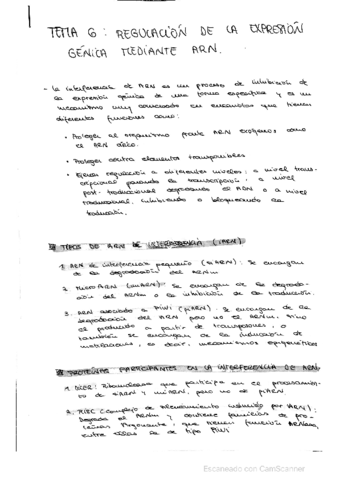 TEMA 6: REGULACIÓN DE LA EXPRESIÓN
GÉNICA MEDIANTE ARN.
- La interferencia de ARN es un proceso de inhibición de
la expresión génica de una forma específica y es un
mecanismo muy conservado en eucariotas que tienen
diferentes funciones como:
• Proteger al organismo frente ARN exógenos como
el ARN vírico.
• Proteger contra elementos transponibles
• Ejercer regulación a diferentes niveles: a nivel trans-
cripcional parando la transcripción, a nivel
post-traduccional degradando el ARN o a nivel
traduccional, inhibiendo o bloqueando la
traducción.
TIPOS DE ARN DE INTERFERENCIA (iARN)
1. ARN de interferencia pequeño (siARN): Se encargan
de la degradación del ARNm
2. MicroARN (miARN): Se encargan de la degrada-
ción del ARNm o la inhibición de la traducción.
3. ARN asociado a PIWI (piARN): Se encargan de la
degradación del ARN pero no el ARNm. Sino
el producido a partir de transposones, o
también se encargan de la inducción de
metilaciones, es decir, mecanismos epigenéticos
PROTEÍNAS PARTICIPANTES EN LA INTERFERENCIA DE ARN
1. DICER: Ribonucleasa que participa en el procesamien-
to de siARN y miARN, pero no de piARN.
2. RISC (Complejo de silenciamiento inducido por ARN):
Degrada el ARNm y contiene familias de pro-
teínas Argonaute, que tienen función ARNasa,
entre ellas las de tipo PIWI
Escaneado con CamScanner